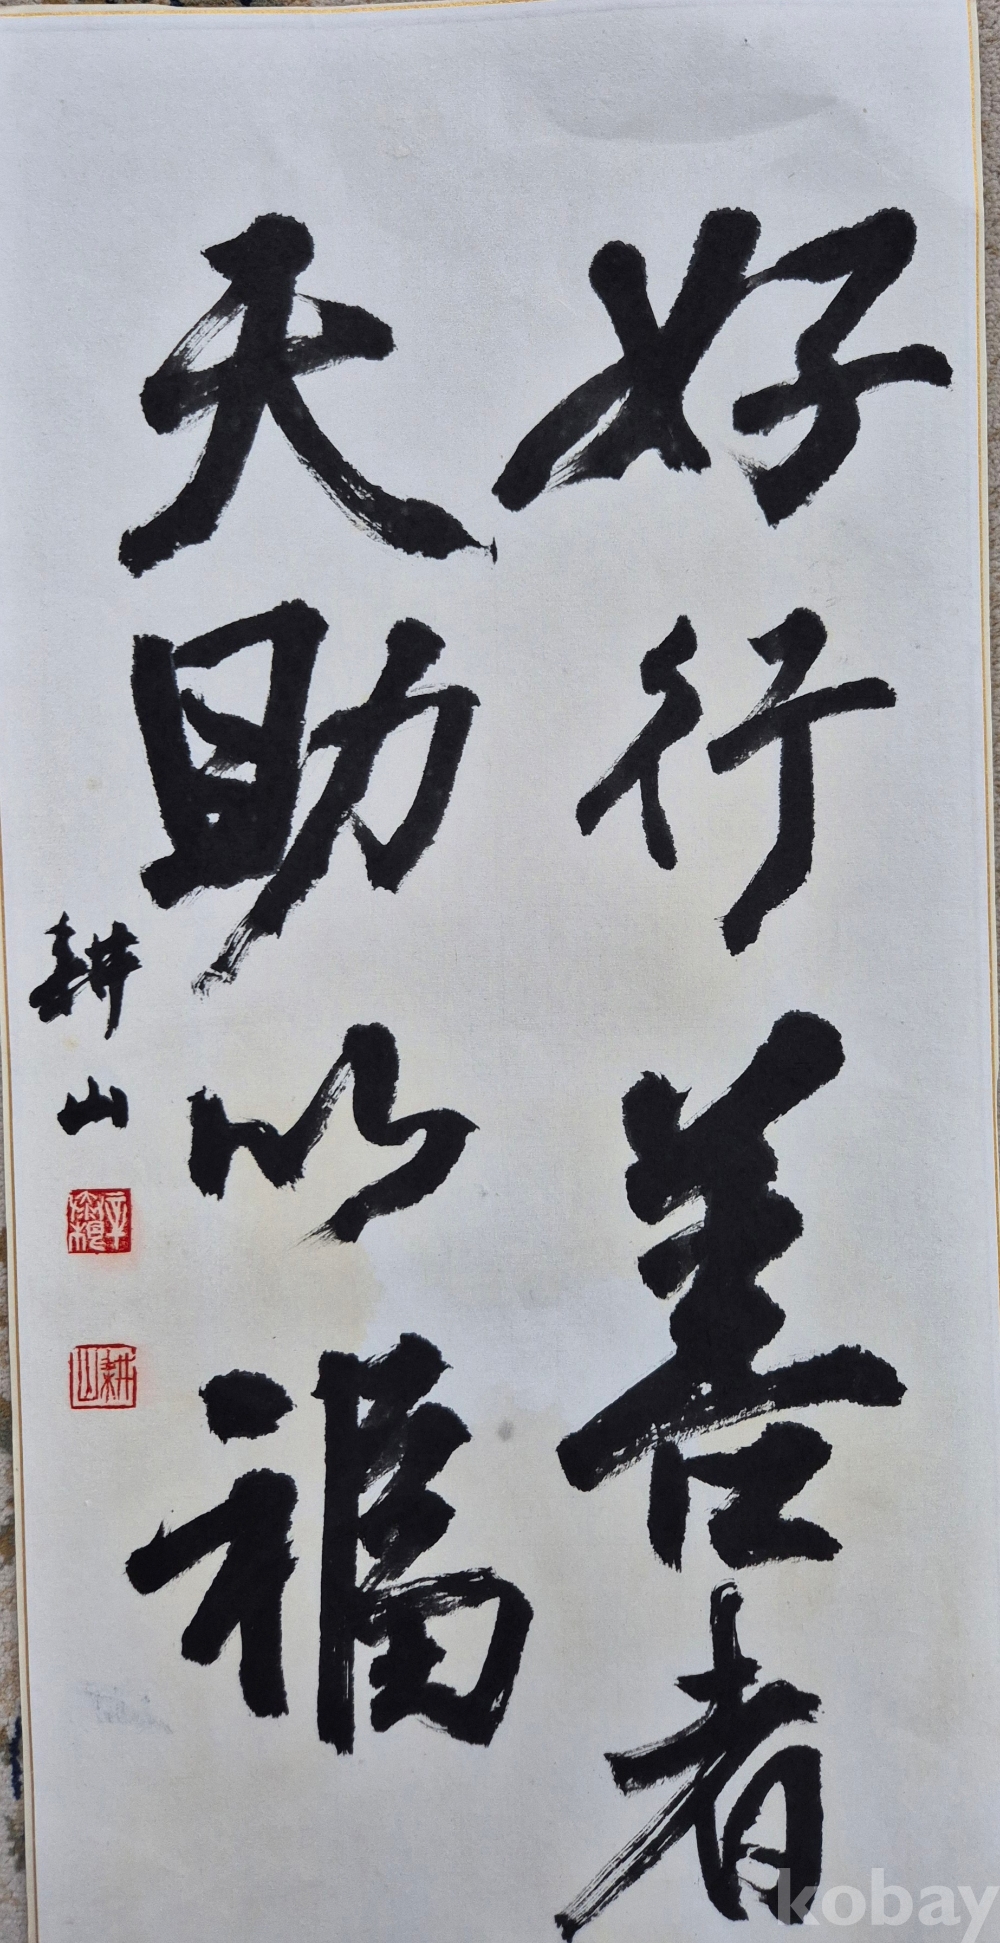 好行善者
天助以福
耕山
耕山
kobay